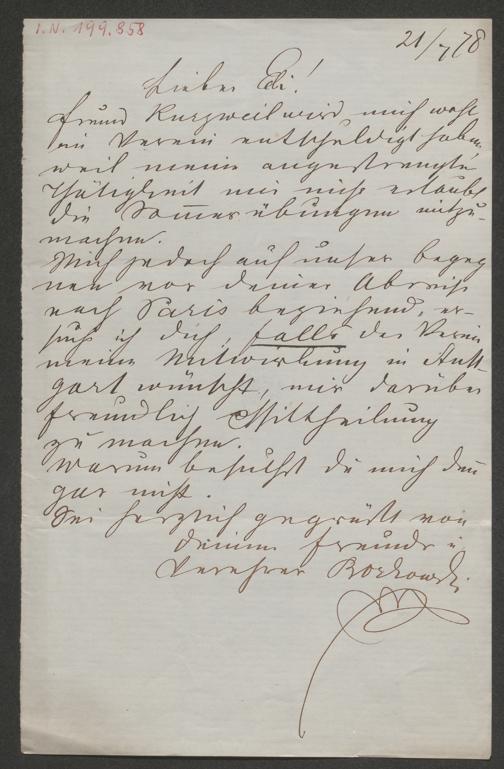 I.N. 199.858
21/7 78
Lieber Edi!
Freund Kurzweil wird mich wohl
im Verein entschuldigt haben,
weil meine angestrengte
Thätigkeit mir nicht erlaubt
die Sommerübungen mitzu-
machen.
Mich jedoch auf unser begeg
nen vor deiner Abreise
nach Paris beziehend, er-
suche ich dich, falls der Verein
meine Mitwirkung in Stutt
gart wünscht, mir darüber
freundlich Mittheilung
zu machen.
Warum besuchst du mich den̄
gar nicht.
Sei herzlich gegrüßt von
deinem Freunde u
Verehrer Borkowski